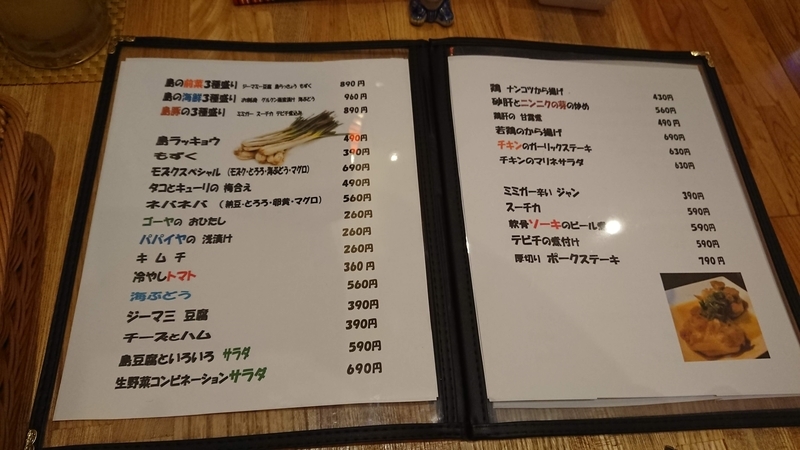 島の前菜3種盛り ジーマミー豆腐 島らっきょう もずく 890円
島の海鮮3種盛り 海ぶどう 960円
島豚の3種盛り ミミガー スーチカ テビチ煮込み 890円
島ラッキョウ 490円
もずく 390円
モズクスペシャル (モズク・とろろ・海ぶどう・マグロ) 690円
タコとキューリの 梅合え 490円
ネバネバ (納豆・とろろ・卵黄・マグロ) 560円
ゴーヤの おひたし 260円
パパイヤの 浅漬け 260円
キムチ 260円
冷やしトマト 360円
海ぶどう 560円
ジーマ三 豆腐 390円
チーズとハム 390円
島豆腐といろいろ サラダ 590円
生野菜コンビネーションサラダ 690円
鶏 ナンコツから揚げ 430円
砂肝とニンニクの芽の炒め 560円
鶏肝の 甘露煮 490円
若鶏のから揚げ 690円
チキンのガーリックステーキ 630円
チキンのマリネサラダ 630円
ミミガー辛い ジャン 390円
スーチカ 590円
軟骨ソーキのビール煮 590円
テビチの煮付け 590円
厚切り ポークステーキ 790円